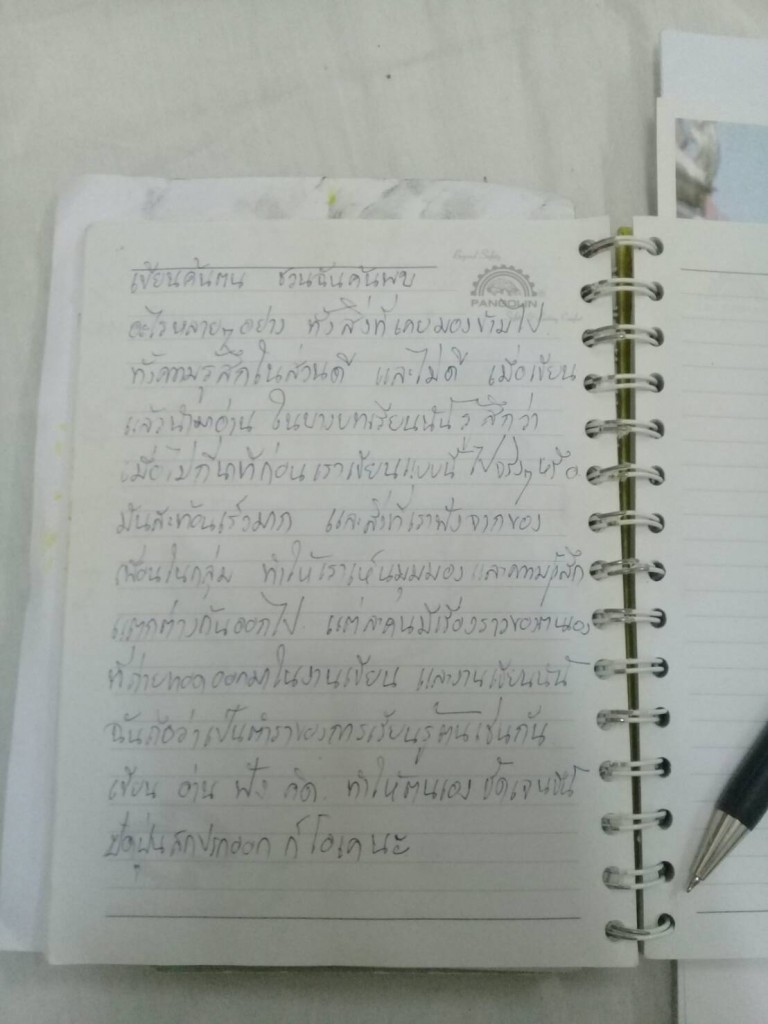 Beyond Safety
PANGOLIN
เขียนค้นตน ชวนฉันค้นพบ
อะไรหลายๆอย่าง ทั้งสิ่งที่เคยมองข้ามไป
ทั้งความรู้สึกในส่วนดี และไม่ดี เมื่อเขียน
แล้วนำมาอ่าน ในบางบทเรียนนั้นรู้สึกว่า
เมื่อไม่กี่นาทีก่อนเราเขียนแบบนี้ไปจริงๆหรือ
มันสะท้อนเร็วมาก และสิ่งที่เราฟังจากของ
เพื่อนในกลุ่ม ทำให้เราเห็นมุมมอง และความรู้สึก
แตกต่างกันออกไป แต่ละคนมีเรื่องราวของตนเอง
ที่ถ่ายทอดออกมาในงานเขียน และงานเขียนนั้น
ฉันถือว่าเป็นตำราของการเรียนรู้ตนเช่นกัน
เขียน อ่าน ฟัง คิด ทำให้ตนเอง ชัดเจนขึ้น
ปัดฝุ่นสกปรกออก ก็โอเคนะ